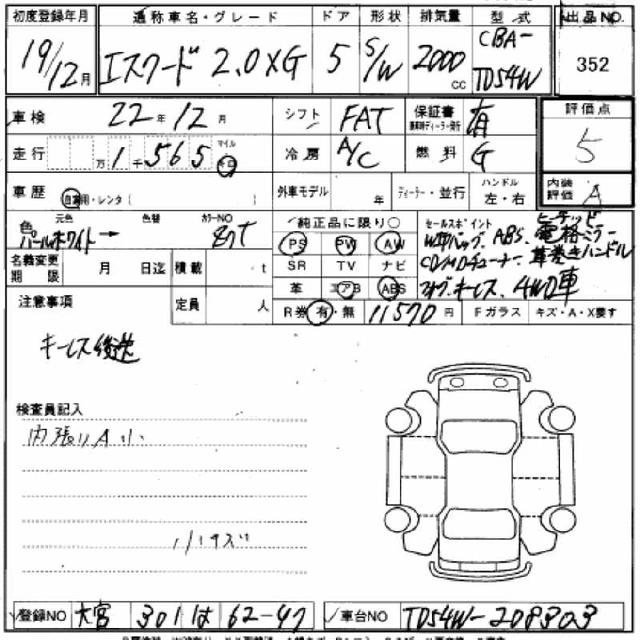 初度登録年月 通称車名・グレード ドア 形状 排気量 型式 出品NO.
19/12月 エスクード 2.0XG 5 S/W 2000cc CBA-TD54W 352
車検 22年 12月 シフト FAT 保証書 有 評価点
走行 万 1千565 マイル キロ 冷房 A/C 燃料 G 5
車歴 自家用・レンタ( ) 外車モデル 年 ディーラー・並行 ハンドル 左・右 内装評価 A
色 元色 色替 カラーNO
パールホワイト→
純正品に限り○ セールスポイント
PS PW AW Wエアバッグ、ABS、ヒーテッド電格ミラー
SR TV ナビ CDMDチューナー、革巻きハンドル
革 エアB ABS フォグ、キーレス、4WD車
名義変更期限 月 日迄 積載 t
定員 人
R券 有・無 11570円 Fガラス キズ・A・X要す
注意事項
キーレス後送
検査員記入
内張りA小
小キズ
登録NO 大宮 301 は 62-47 車台NO TD54W-208303